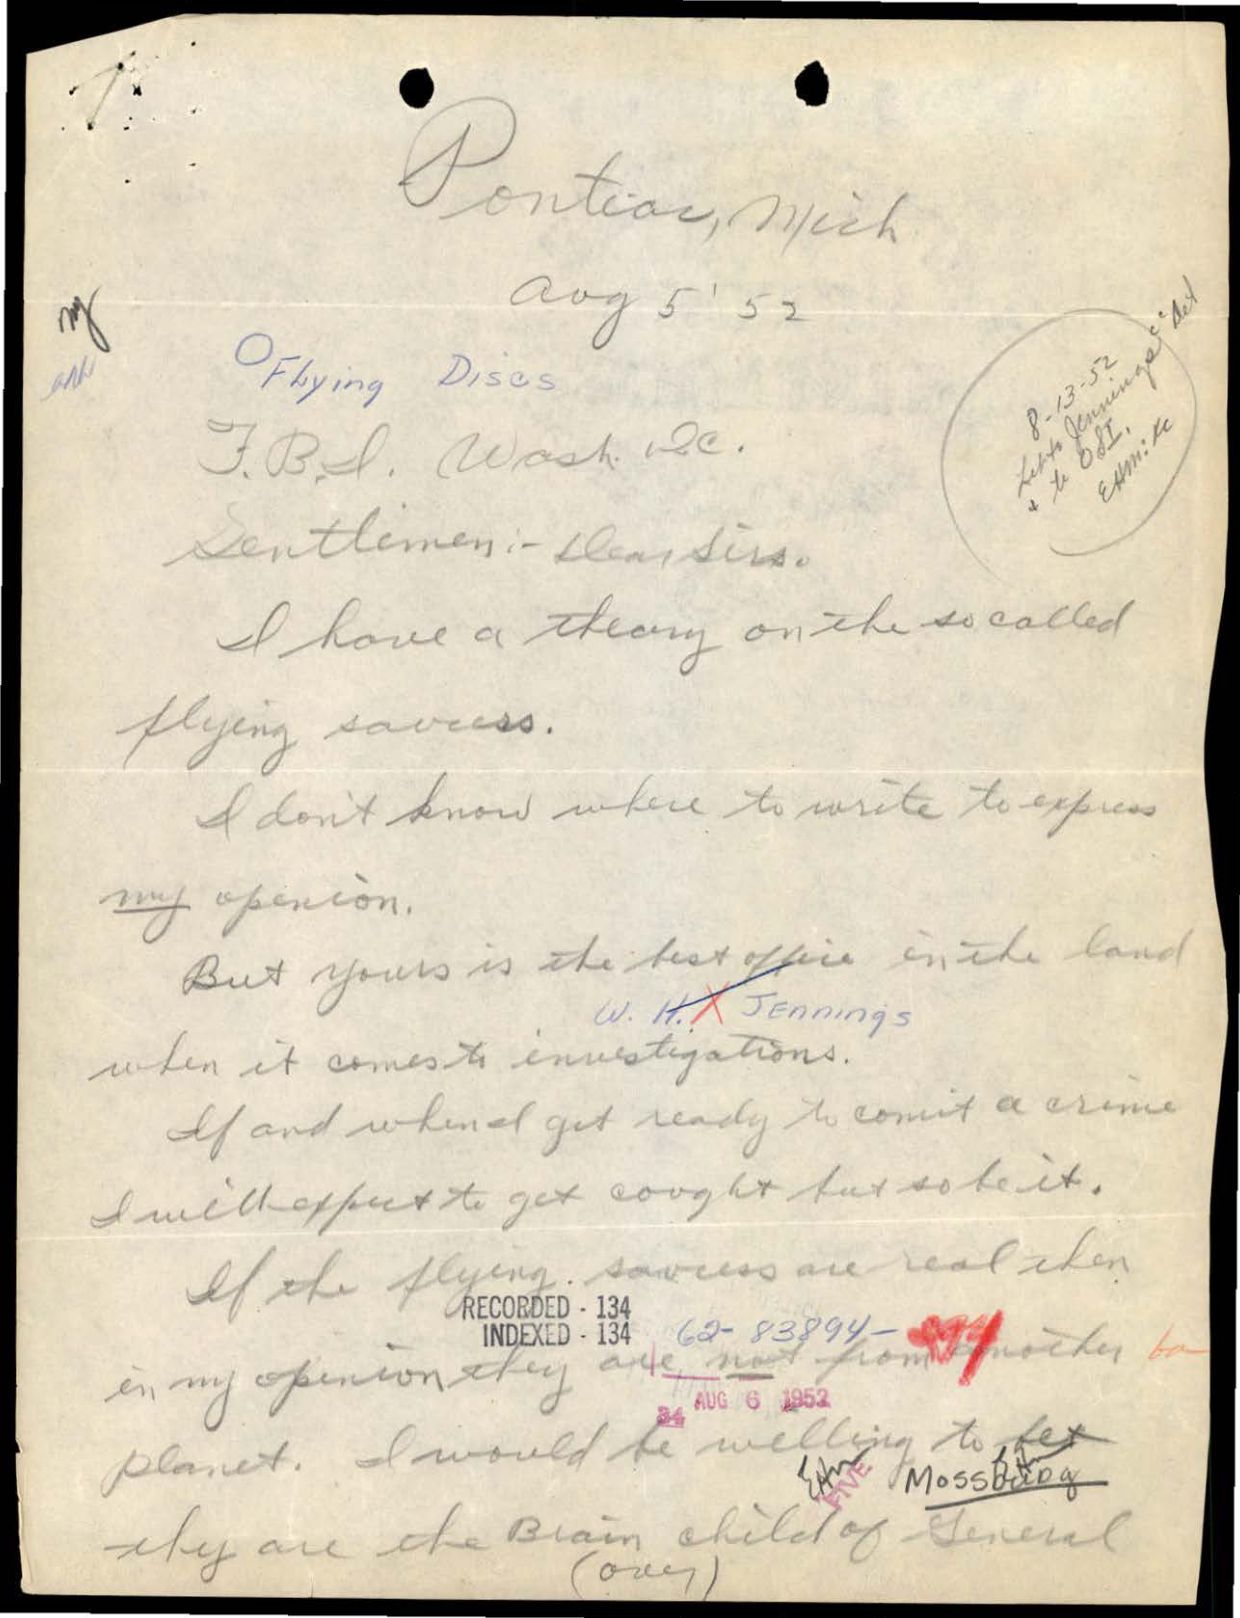 Pontiac, Mich
Aug 5 '52
Flying Discs
8-13-52
Let to Jennings
+ to OSI.
EHM:kc
F.B.I. Wash. DC.
Gentlimen:- Dear Sirs.
I have a theory on the so called
flying saucess.
I don't know where to write to express
my openion.
But yours is the best office in the land
W. H. X Jennings
when it comes to investigations.
If and when I get ready to comit a crime
I will expect to get cought but so be it.
If the flying saucess are real then
RECORDED - 134
INDEXED - 134
62-83894-
in my openion they are not from another
AUG 6 1952
34
planet. I would be welling to bet
EHM
FIVE
MossBurg
they are the Brain child of General
(over)